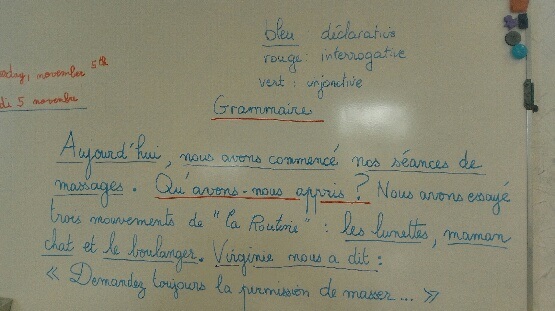 bleu déclarative
rouge : interrogative
vert : injonctive
day, november 5th
di 5 novembre
Grammaire
Aujourd'hui, nous avons commencé nos séances de
massages. Qu'avons-nous appris ? Nous avons essayé
trois mouvements de "La Routine" : les lunettes, maman
chat et le boulanger. Virginie nous a dit :
« Demandez toujours la permission de masser ... »